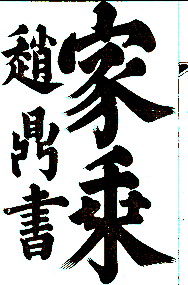 家乘
趙鼎書